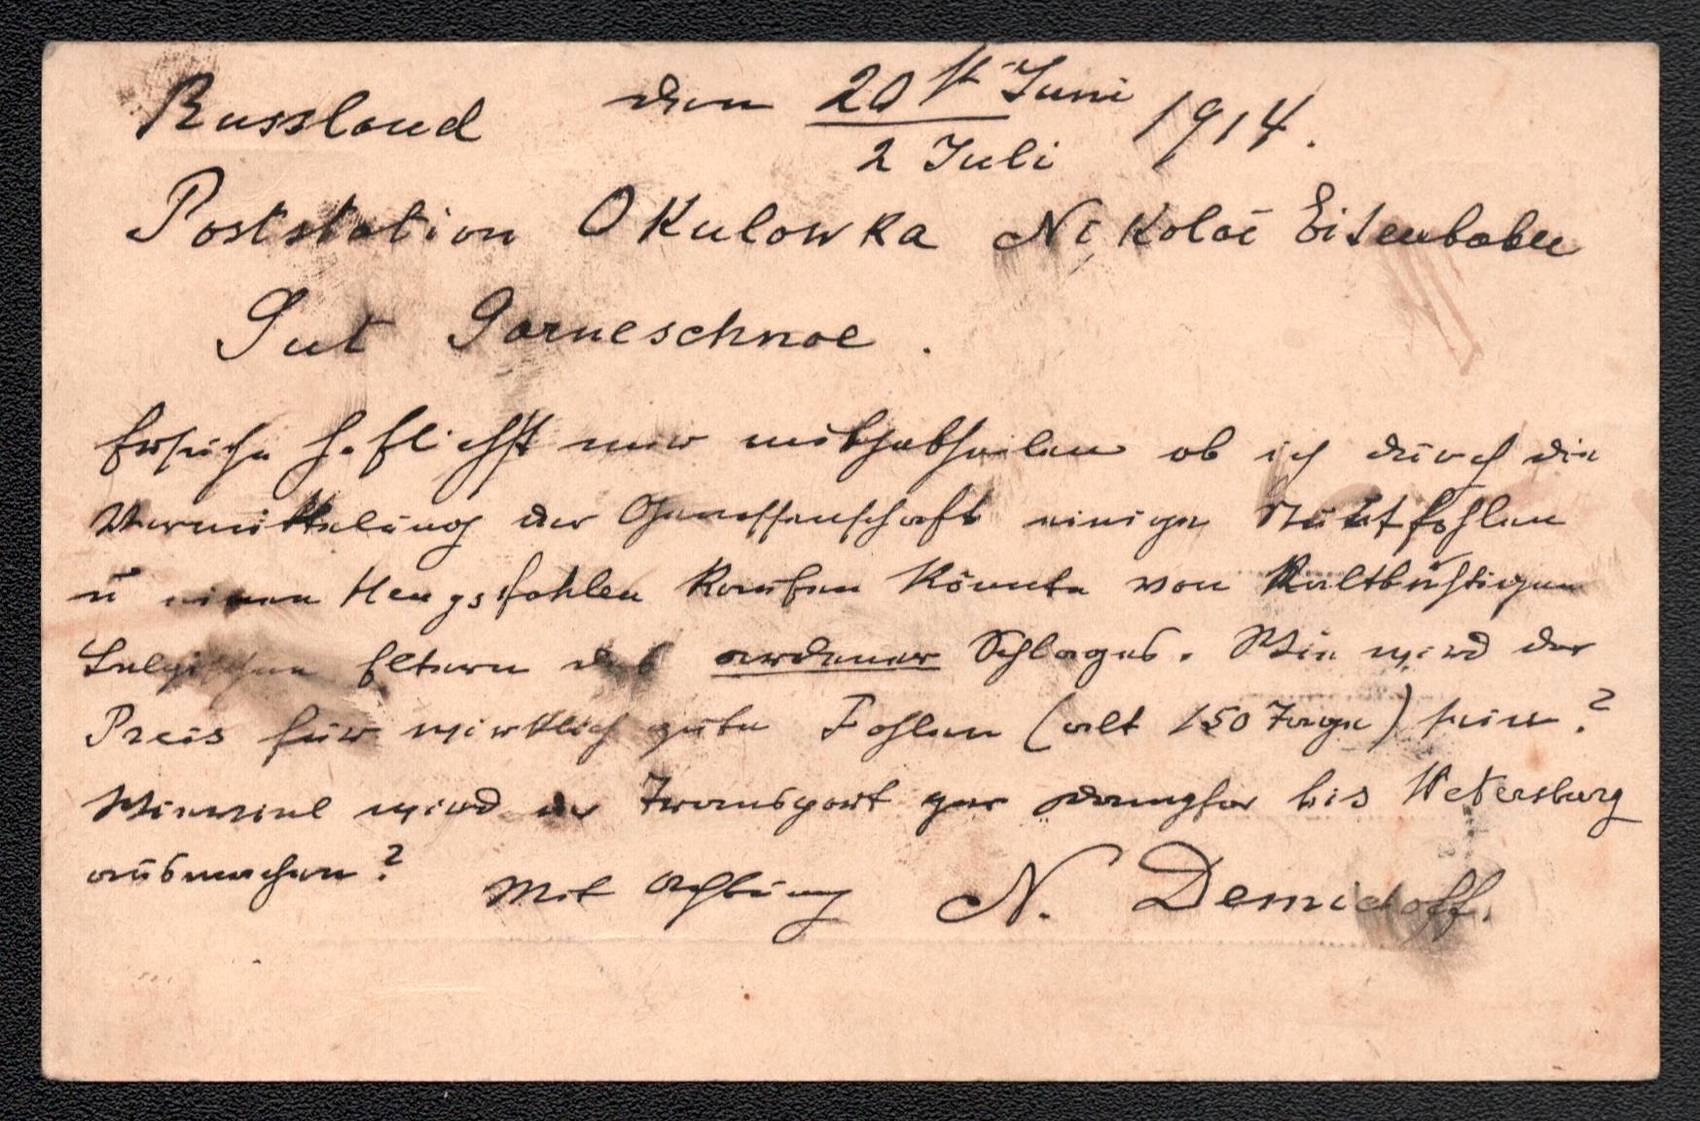 Russland den 20st Juni 1914.
2 Juli
Poststation Okulowka Nikolai Eisenbahn
Gut Gorneschnoe.
Ersuche höflichst mir ob ich durch die
Vermittelung der Genossenschaft einige Stutfohlen
u einen Hengsfohlen kaufen könnte von Kaltblühtigen
belgischen Eltern des ardener Schlages. Wie wird der
Preis für wirklich gute Fohlen (alt 150 Tage) sein?
Wieviel wird der Transport per dampfer bis Petersburg
ausmachen?
Mit Achtung N. Demidoff.